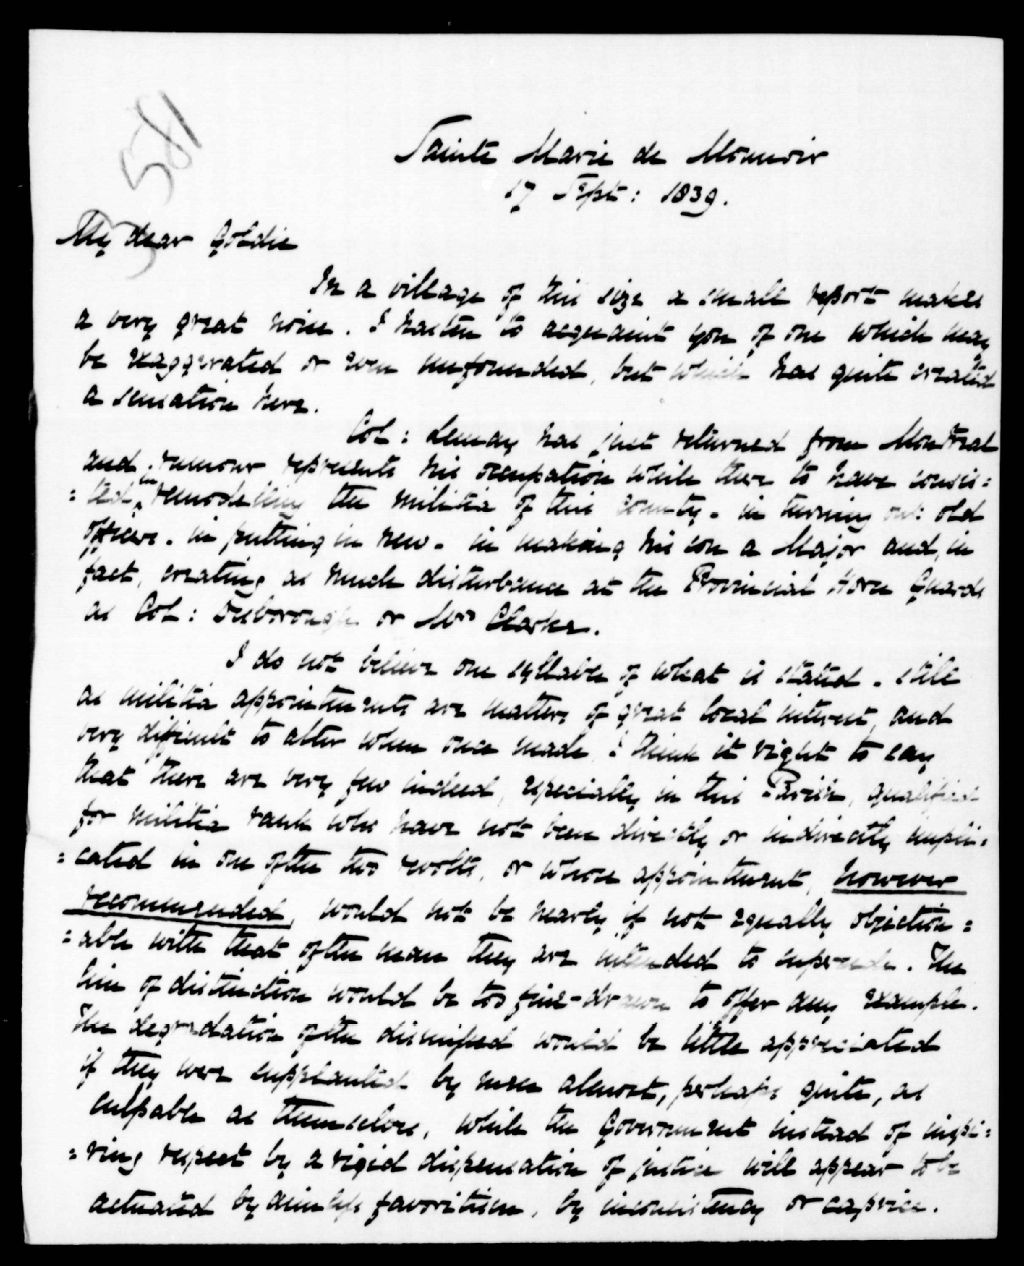 3581
Sainte Marie de Monnoir
17 Sept: 1839.
My dear Goldie
In a village of this size a small report makes
a very great noise. I hasten to acquaint you of one which may
be exaggerated or even unfounded, but which has quite created
a sensation here.
Col: Lemay has just returned from Montreal
and rumour represents his occupation while there to have consis=
=ted in remodelling the militia of this County. in turning out old
officers. in putting in new. in making his son a Major and, in
fact, creating as much disturbance as the Provincial Horse Guards
as Col: Desborough or Mr Clarke.
I do not believe one syllable of what is stated. still
as militia appointments are matters of great local interest, and
very difficult to alter when once made, I think it right to say
that there are very few indeed, especially in this Parish, qualified
for militia rank who have not been directly or indirectly impli=
=cated in one of the two revolts, or whose appointment, however
recommended, would not be nearly, if not equally objection=
=able with that of the man they are intended to supersede. The
line of distinction would be too fine-drawn to offer any example.
The degradation of the dismissed would be little appreciated
if they were supplanted by men almost, perhaps quite, as
culpable as themselves, while the Government instead of inspi=
=ring respect by a rigid dispensation of justice will appear to be
actuated by aimless favoritism, by inconsistency or caprice.